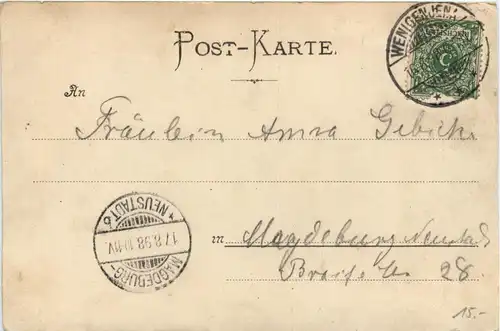 POST-KARTE.
WENIGENJENA
An
Fräulein Anna
in Magdeburg Neustadt
28.
MAGDEBURG-NEUSTADT
17.8.98
15.-